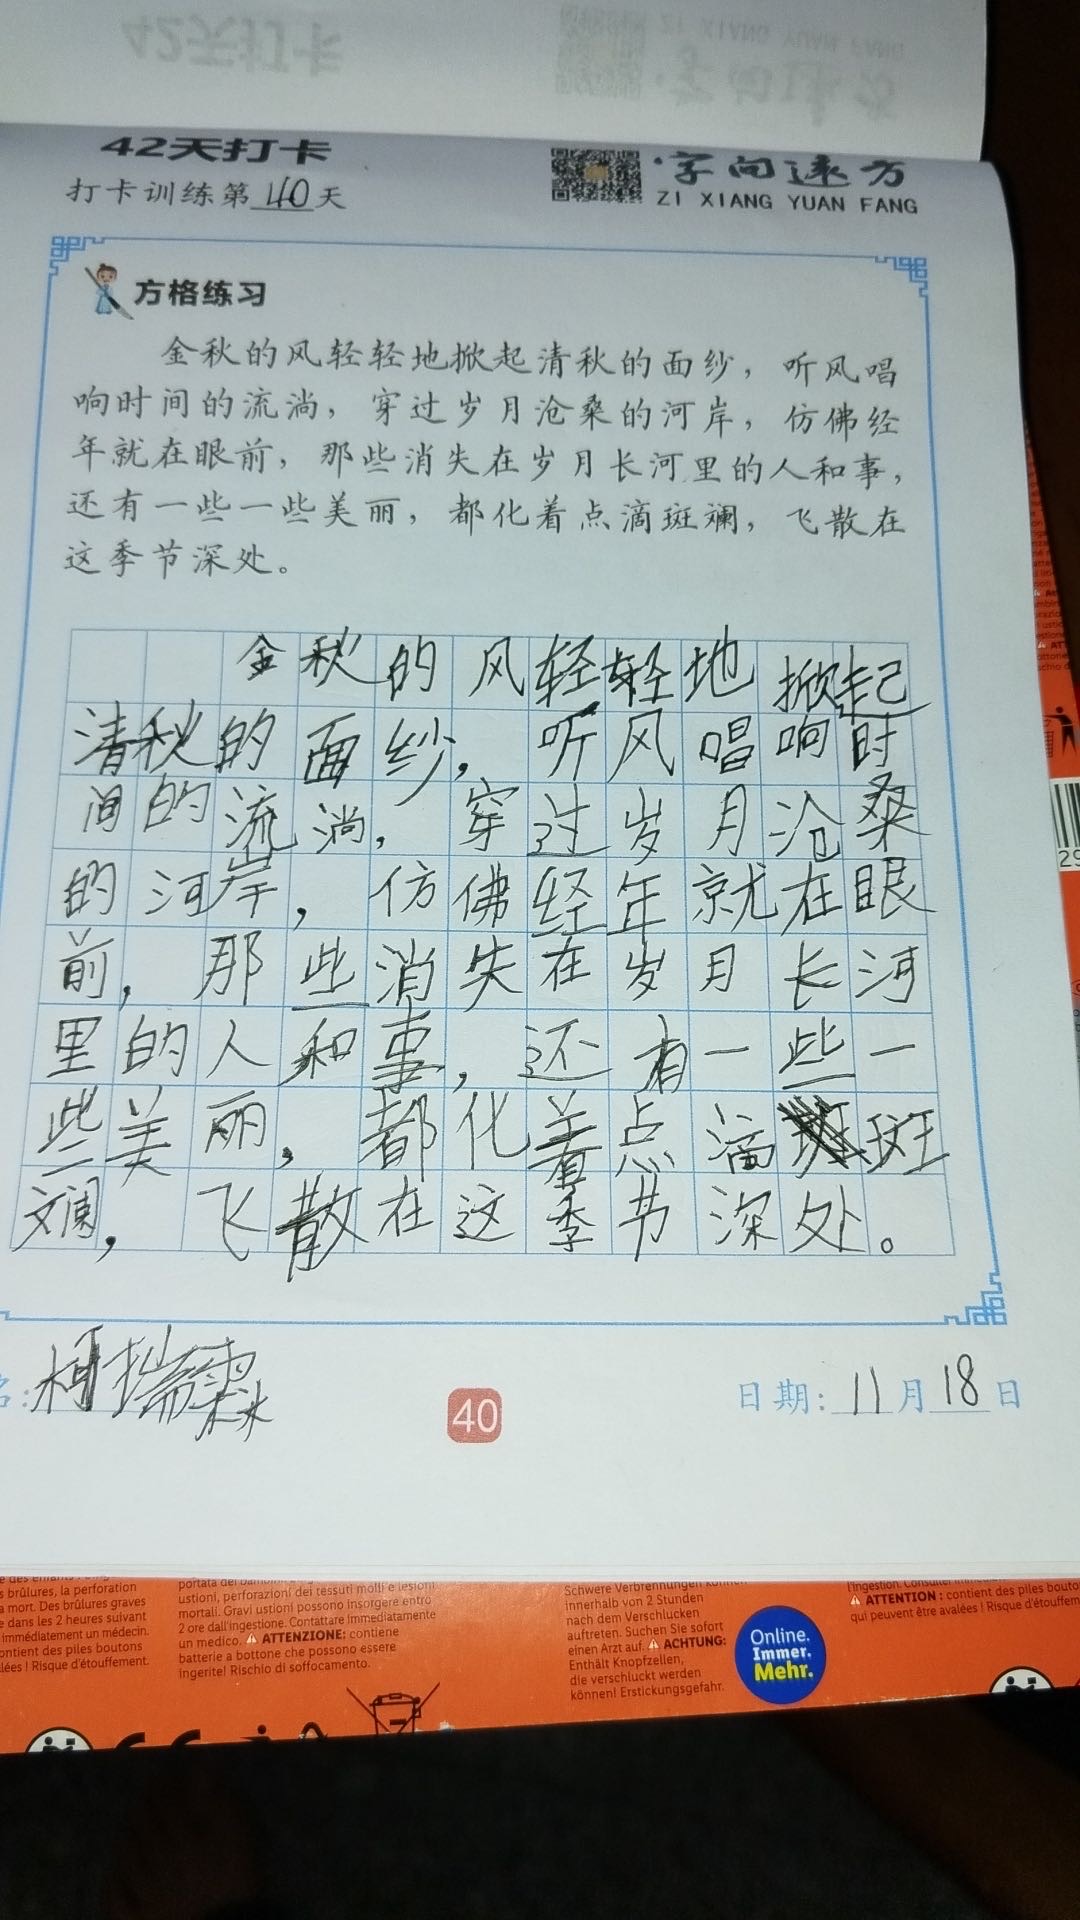 42天打卡
ZI XIANG YUAN FANG
字向远方
42天打卡
打卡训练第40天
字向远方
ZI XIANG YUAN FANG
方格练习
金秋的风轻轻地掀起清秋的面纱，听风唱
响时间的流淌，穿过岁月沧桑的河岸，仿佛经
年就在眼前，那些消失在岁月长河里的人和事，
还有一些一些美丽，都化着点滴斑斓，飞散在
这季节深处。
金秋的风轻轻地掀起
清秋的面纱，听风唱响时
间的流淌，穿过岁月沧桑
的河岸，仿佛经年就在眼
前，那些消失在岁月长河
里的人和事，还有一些一
些美丽，都化着点滴斑
斓，飞散在这季节深处。
名:柯瑞霖
40
日期:11月18日
29
des brûlures, la perforation
la mort. Des brûlures graves
dans les 2 heures suivant
immédiatement un médecin.
contient des piles boutons
avalées ! Risque d'étouffement.
ustioni, perforazioni dei tessuti molli e lesioni
mortali. Gravi ustioni possono insorgere entro
2 ore dall'ingestione. Contattare immediatamente
un medico. ⚠ ATTENZIONE: contiene
batterie a bottone che possono essere
ingerite! Rischio di soffocamento.
Schwere Verbrennungen können
innerhalb von 2 Stunden
nach dem Verschlucken
auftreten. Suchen Sie sofort
einen Arzt auf. ⚠ ACHTUNG:
Enthält Knopfzellen,
die verschluckt werden
können! Erstickungsgefahr.
Online.
Immer.
Mehr.
⚠ ATTENTION : contient des piles bouto
qui peuvent être avalées ! Risque d'étouffem
CE